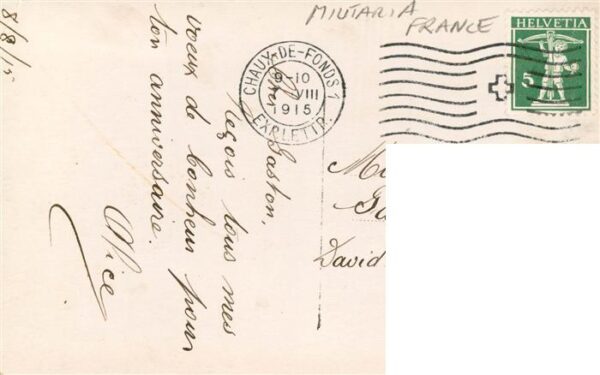 MILITARIA
FRANCE
HELVETIA
5
CHAUX-DE-FONDS 1
9-10
VIII
1915
EXP. LETTR.
8/8/15
Cher Gaston,
reçois tous mes
voeux de bonheur pour
ton anniversaire.
Alice
David